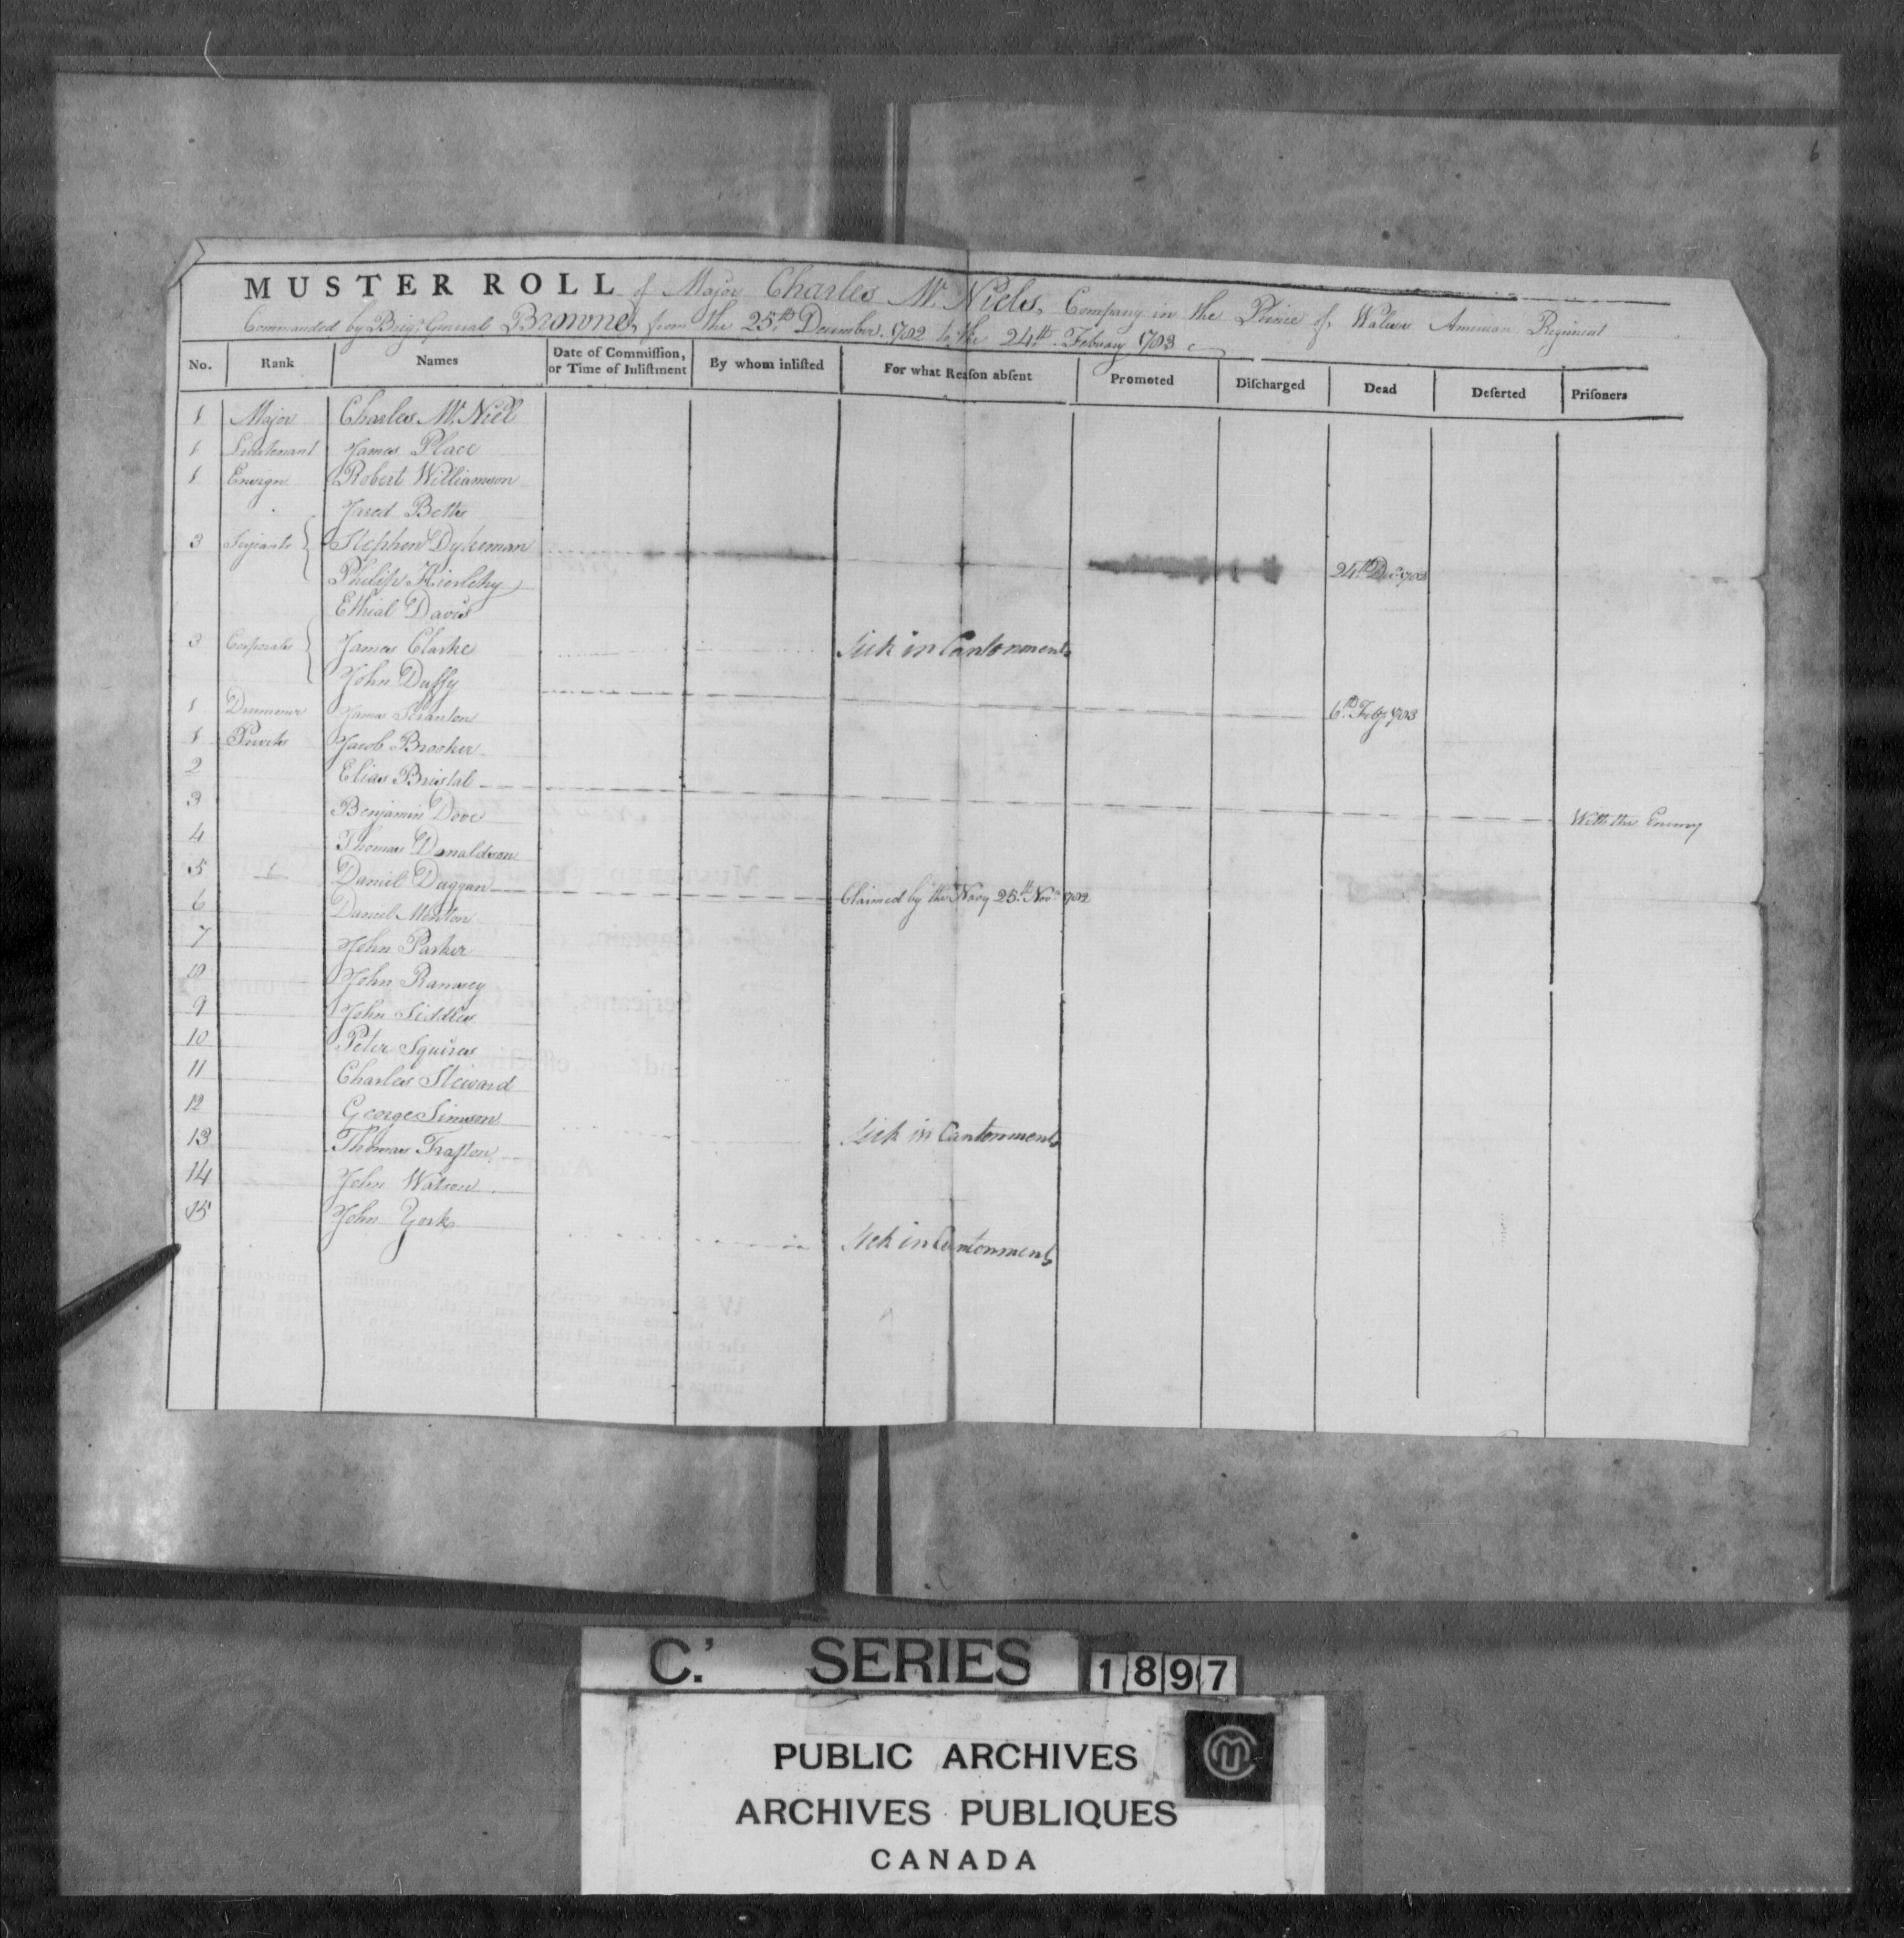 6
MUSTER ROLL of Major Charles Mc. Niels, Company in the Prince of Wales's American Regiment
Commanded by Brigr. General Browne, from the 25th December 1782 to the 24th February 1783
No. Rank Names Date of Commission, or Time of Inlistment By whom inlisted For what Reason absent Promoted Discharged Dead Deserted Prisoners
1 Major Charles Mc. Niel
1 Lieutenant James Place
1 Ensign Robert Williamson
Jared Betts
3 Serjeants Stephen Dykeman 24th Decr 1782
Philip Hierlehy
Ethial Davis
3 Corporals James Clarke Sick in Cantonments
John Duffy
1 Drummer James Scranton 6th Feby 1783
1 Privates Jacob Brooker
2 Elias Bristal
3 Benjamin Dove With the Enemy
4 Thomas Donaldson
5 Daniel Duggan Claimed by the Navy 25th Novr 1782
6 Daniel Morton
7 John Parker
8 John Ramsey
9 John Siddles
10 Peter Squires
11 Charles Steward
12 George Simson Sick in Cantonments
13 Thomas Trafton
14 John Watson
15 John York Sick in Cantonments
C.' SERIES 1897
PUBLIC ARCHIVES
ARCHIVES PUBLIQUES
CANADA